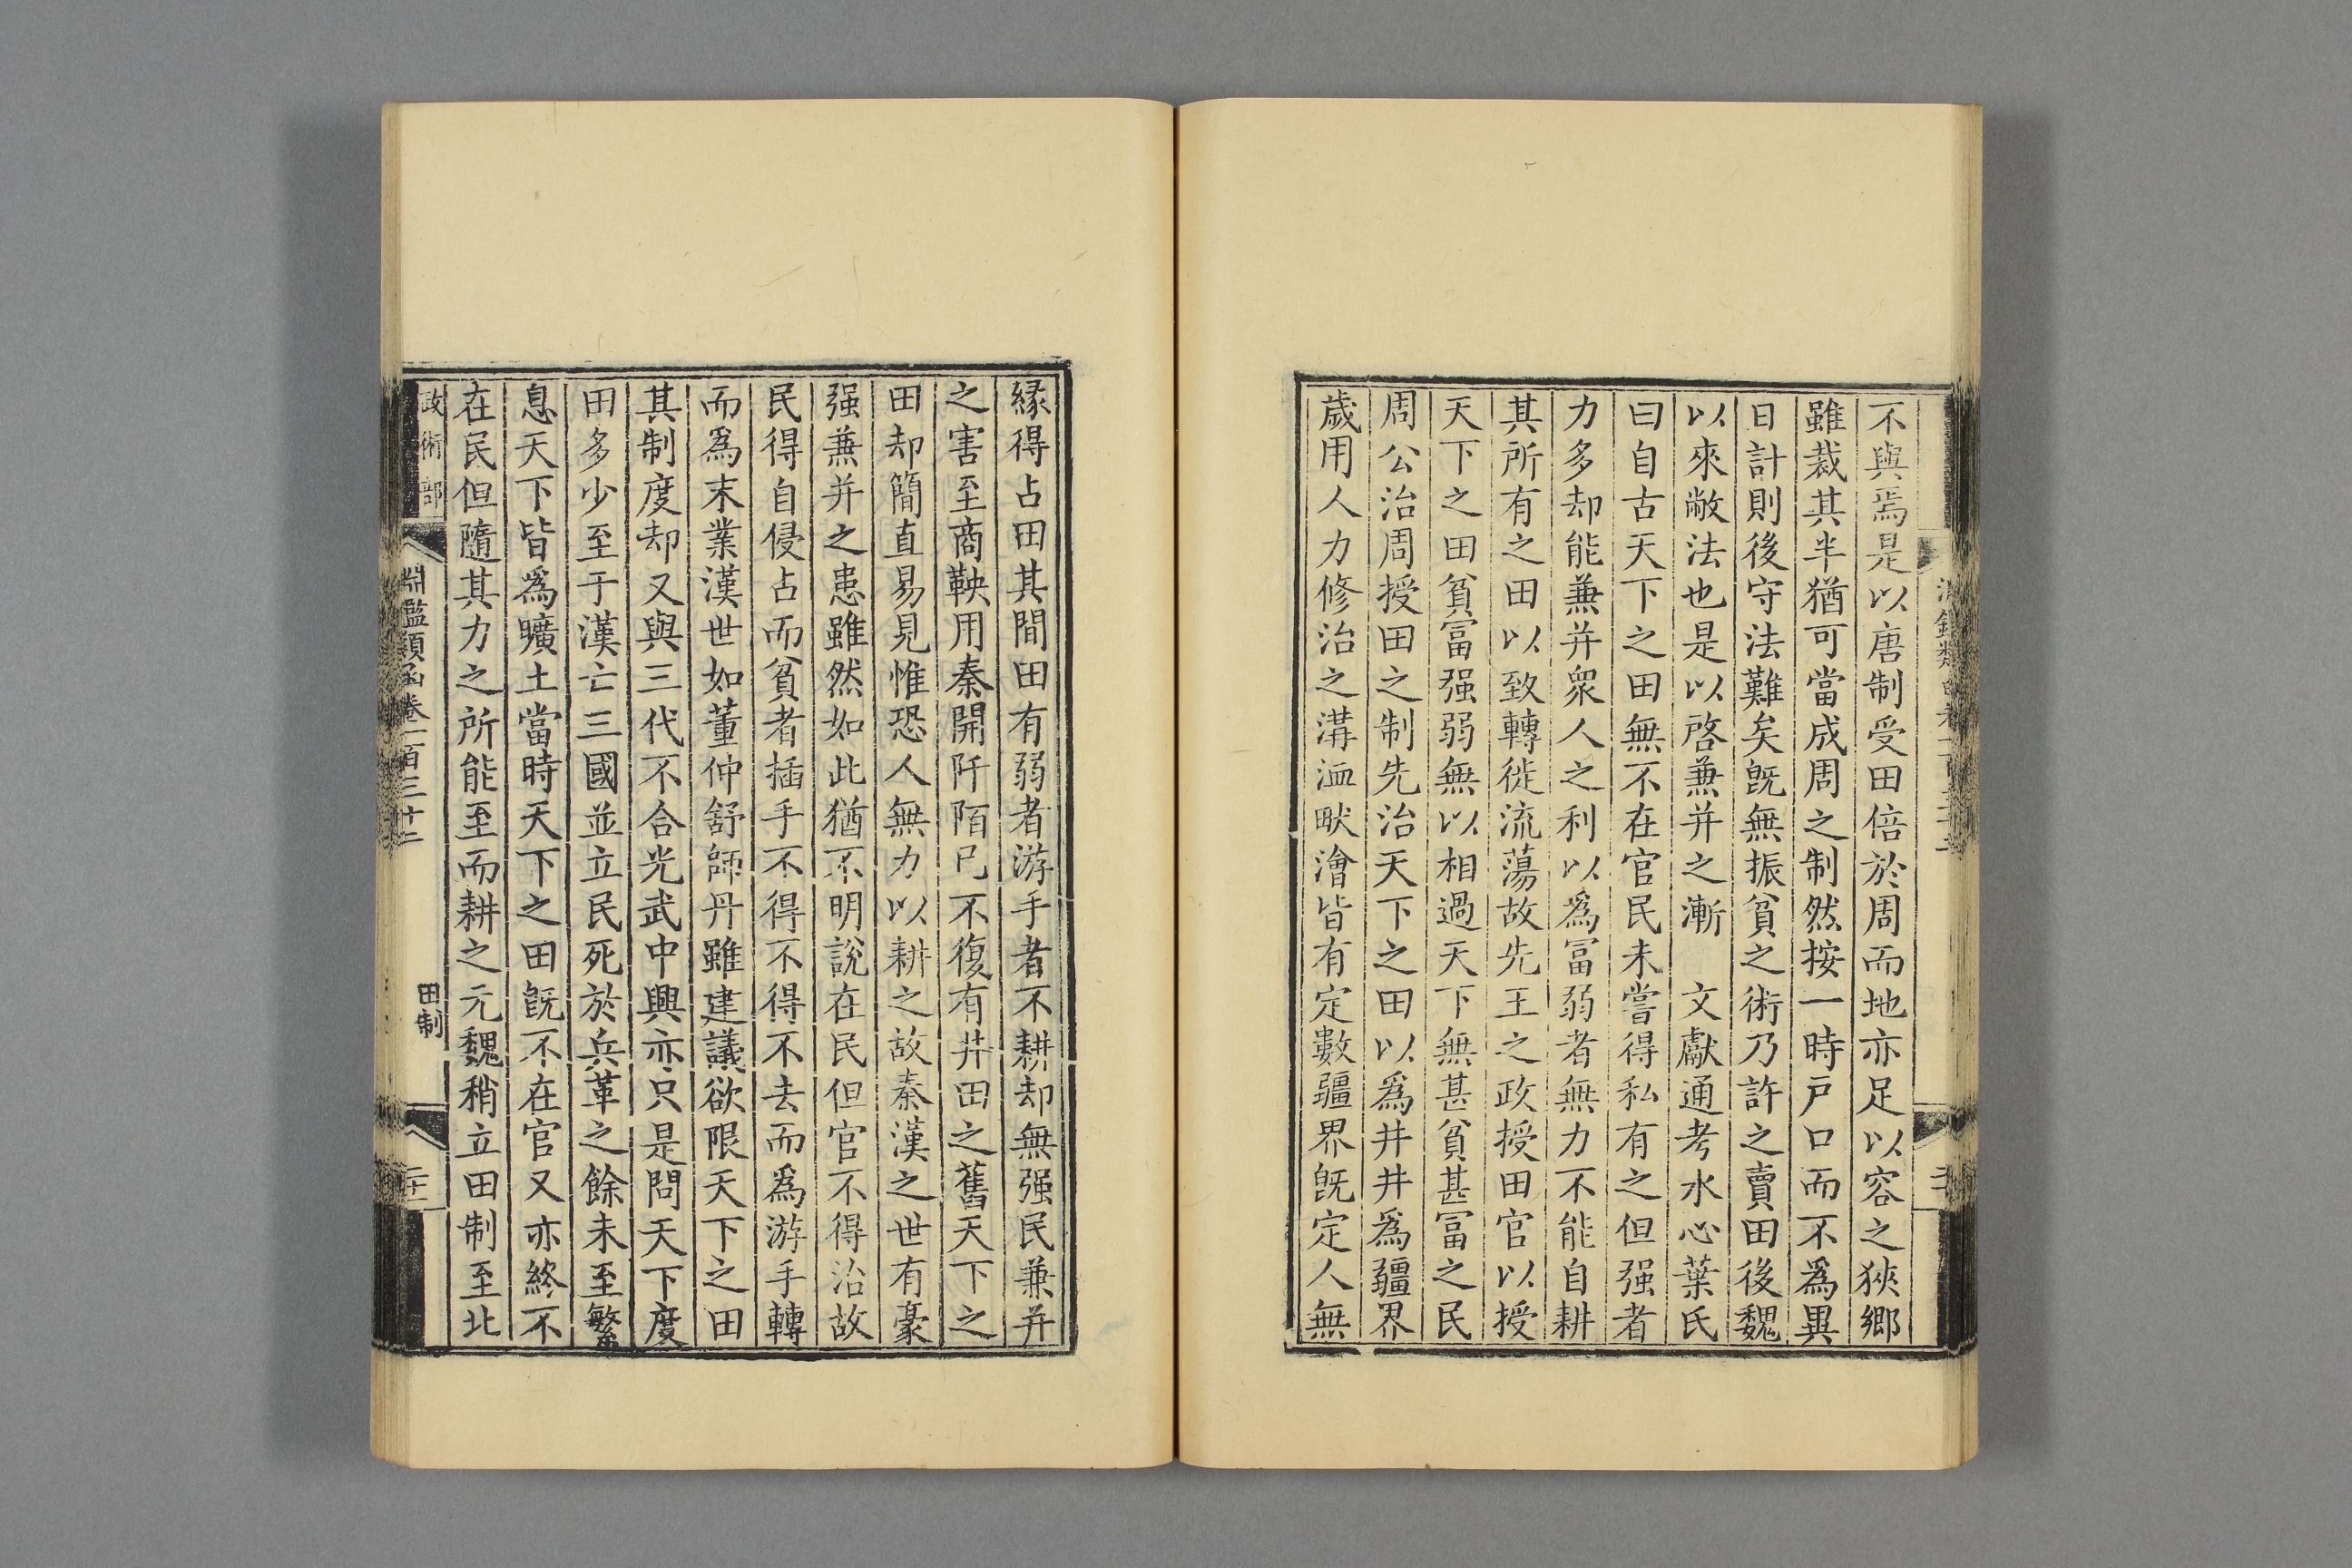 不與焉是以唐制受田倍於周而地亦足以容之狹鄉
雖裁其半猶可當成周之制然按一時戶口而不爲異
日計則後守法難矣旣無振貧之術乃許之賣田後魏
以來敝法也是以啓兼并之漸　文獻通考水心葉氏
曰自古天下之田無不在官民未嘗得私有之但强者
力多却能兼并衆人之利以爲冨弱者無力不能自耕
其所有之田以致轉徙流蕩故先王之政授田官以授
天下之田貧冨强弱無以相過天下無甚貧甚冨之民
周公治周授田之制先治天下之田以爲井井爲疆界
歳用人力修治之溝洫畎澮皆有定數疆界旣定人無
緣得占田其間田有弱者游手者不耕却無强民兼并
之害至商鞅用秦開阡陌已不復有井田之舊天下之
田却簡直易見惟恐人無力以耕之故秦漢之世有豪
强兼并之患雖然如此猶不明說在民但官不得治故
民得自侵占而貧者插手不得不得不去而爲游手轉
而爲末業漢世如董仲舒師丹雖建議欲限天下之田
其制度却又與三代不合光武中興亦只是問天下度
田多少至于漢亡三國並立民死於兵革之餘未至繁
息天下皆爲曠土當時天下之田旣不在官又亦終不
在民但隨其力之所能至而耕之元魏稍立田制至北
政術部
淵鑑類函卷一百三十二
田制